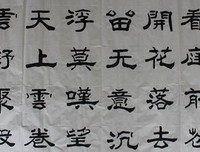 看庭前花
開花落去
留无意沉
浮莫嘆望
天上雲卷
雲舒聚